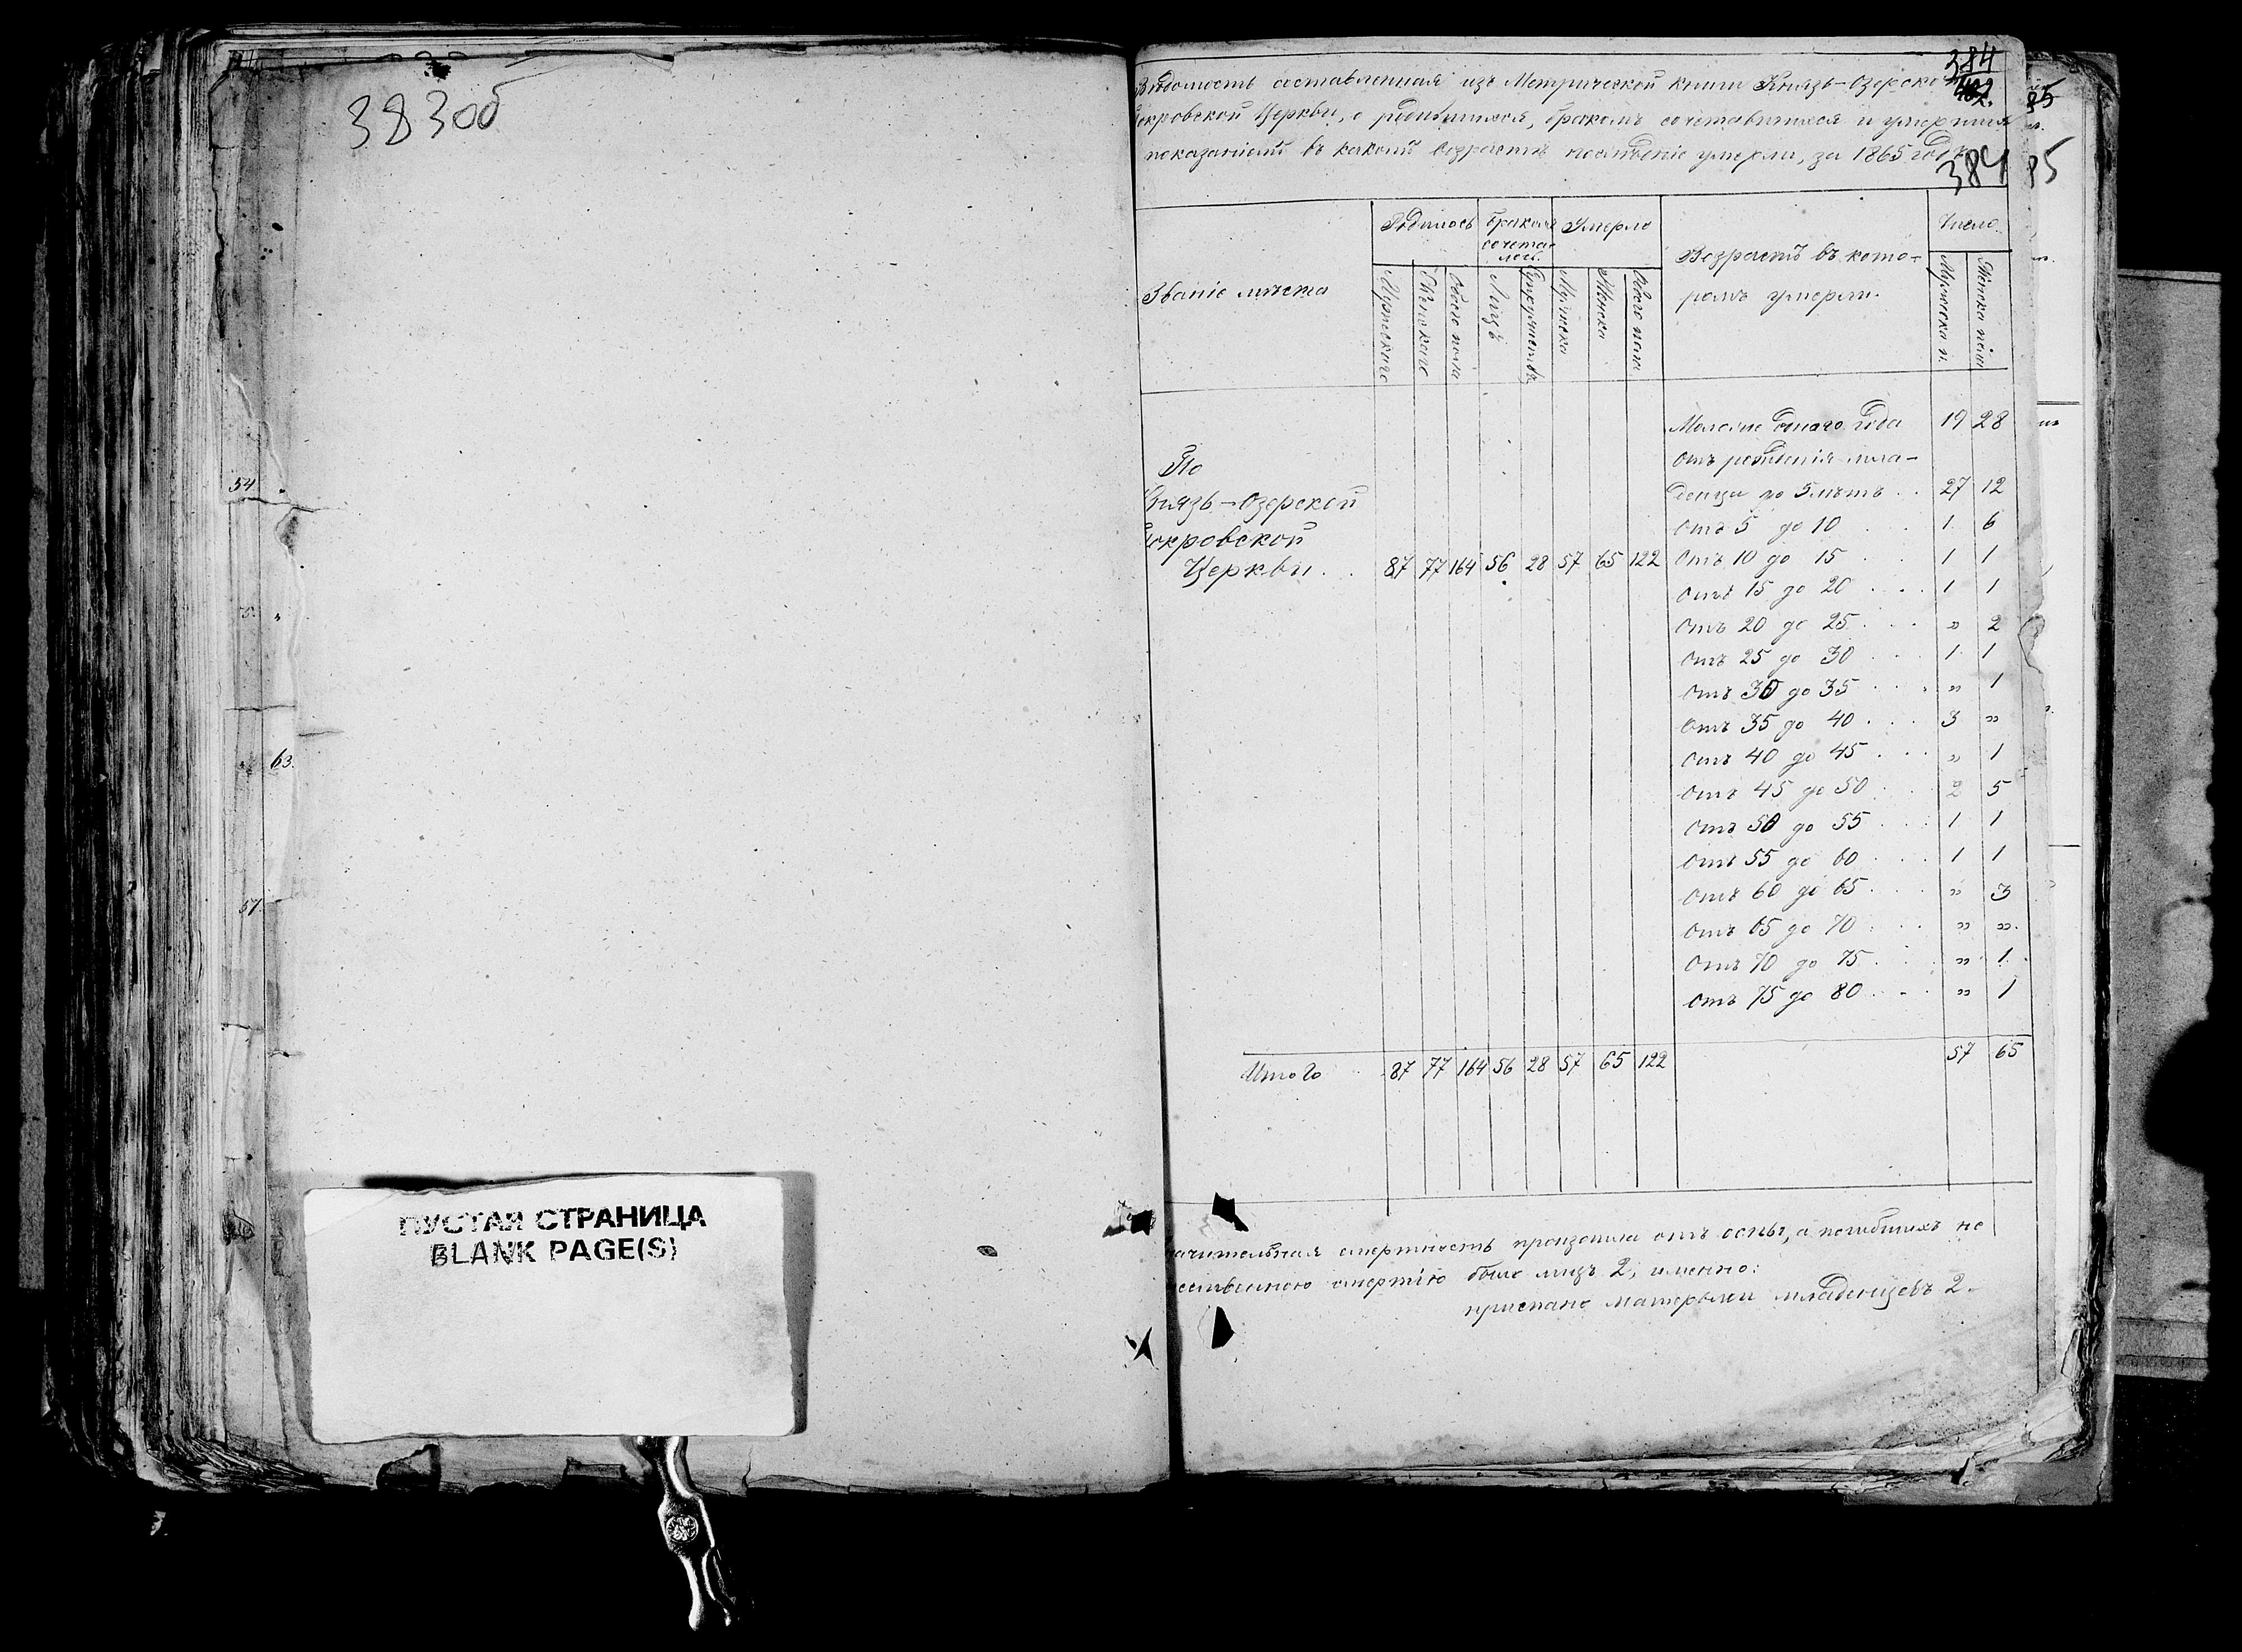 383об
54
63.
57.
ПУСТАЯ СТРАНИЦА
BLANK PAGE(S)
384
Вѣдомость составленная изъ Метрической книги Князь-Озерско
окровской Церкви, о родившихся, бракомъ сочетавшихся и умершихъ
показаніемъ въ какомъ возрастѣ послѣдніе умерли, за 1865 годъ
384
85
85
Званіе мѣста
Родилось
Бракомъ сочета-лось.
Умерло
Возрастъ въ кото-
ромъ умерли.
Число
Мужескаго
Женскаго
Обоего пола
Лицъ
Супружествъ
Мужеска
Женска
Обоего пола
Мужеска п.
Женска пола
По
Князь-Озерской
окровской
Церкви . . 87 77 164 56 28 57 65 122
Моложе одного года 19 28
отъ рожденія мла-
денца до 5 лѣтъ . . 27 12
Отъ 5 до 10 . . 1 6
Отъ 10 до 15 . . 1 1
Отъ 15 до 20 . . . 1 1
Отъ 20 до 25 . . . " 2
Отъ 25 до 30 . . . 1 1
Отъ 30 до 35 . . . " 1
Отъ 35 до 40 . . . 3 "
Отъ 40 до 45 . . . " 1
Отъ 45 до 50 . . . 2 5
Отъ 50 до 55 . . . 1 1
Отъ 55 до 60 . . . 1 1
Отъ 60 до 65 . . . " 3
Отъ 65 до 70 . . . " ".
Отъ 70 до 75 . . . " 1.
Отъ 75 до 80 . . . " 1
Итого 87 77 164 56 28 57 65 122 57 65
ачительная смертность произошла отъ оспы, а погибшихъ не
ественною смертію было лицъ 2, именно:
приспано матерями младенцевъ 2.